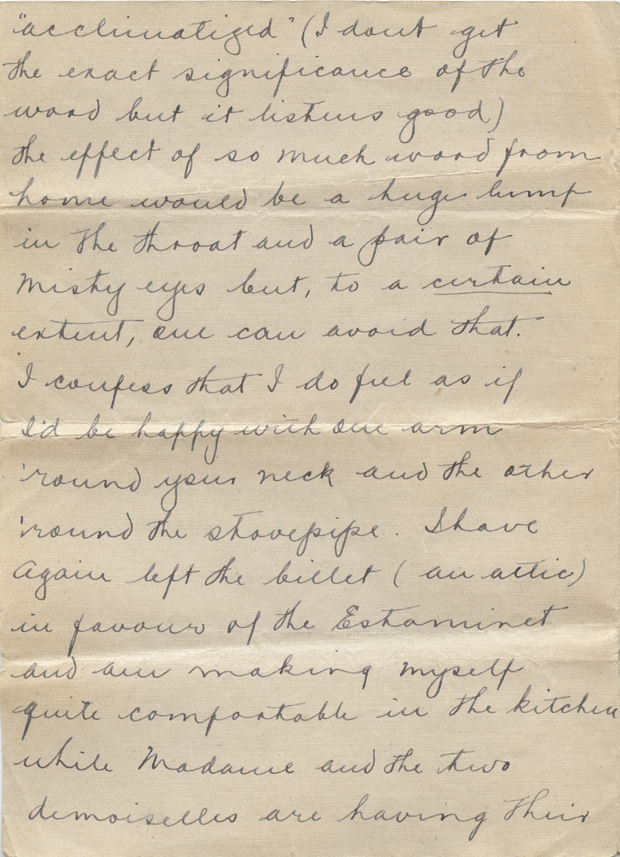 "acclimatized" (I dont get
the exact significance of the
word but it listens good)
the effect of so much word from
home would be a huge lump
in the throat and a pair of
misty eyes but, to a certain
extent, one can avoid that.
I confess that I do feel as if
I'd be happy with one arm
'round your neck and the other
'round the stovepipe. I have
again left the billet (an attic)
in favour of the Estaminet
and am making myself
quite comfortable in the kitchen
while Madame and the two
demoiselles are having their